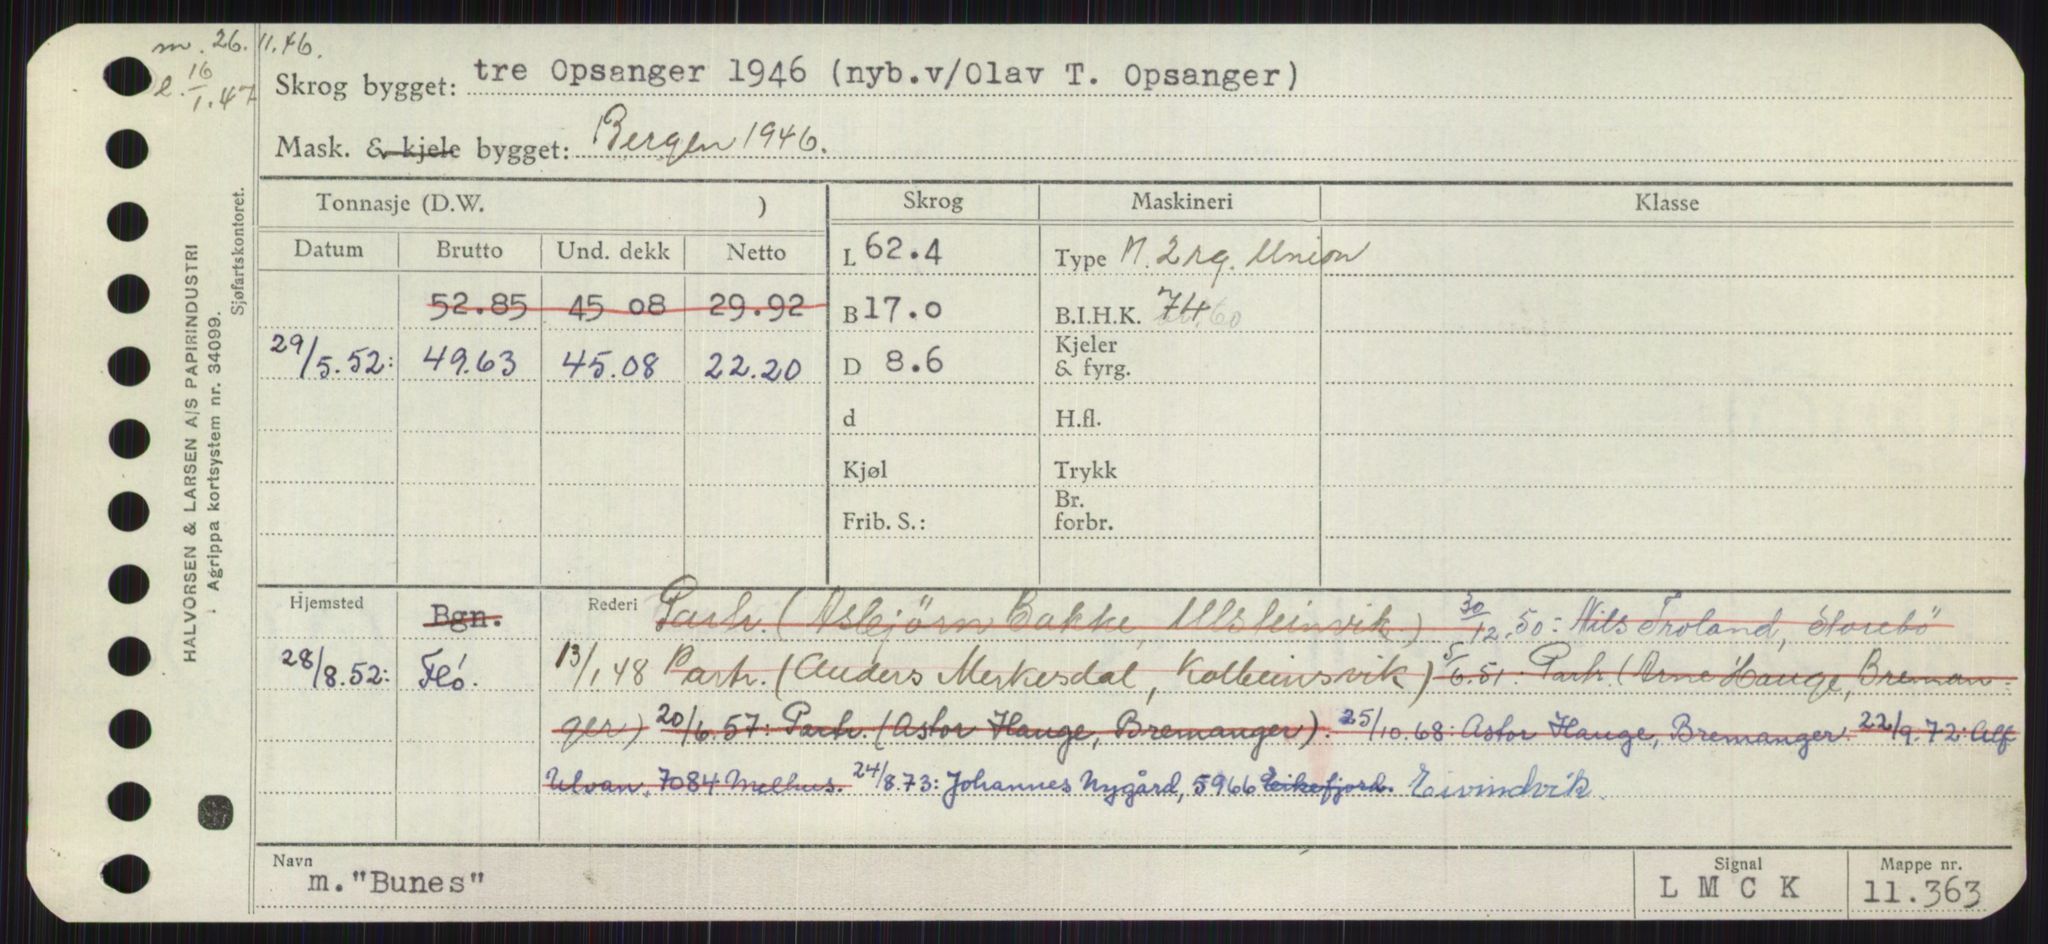 m. 26.11.46.
l. 16/1.47
Skrog bygget: tre Opsanger 1946 (nyb.v/Olav T. Opsanger)
Mask. & kjele bygget: Bergen 1946.
Tonnasje (D.W. )
Skrog
Maskineri
Klasse
Datum Brutto Und. dekk Netto
L 62.4
Type M. 2 rg. Union
52.85 45 08 29.92
B 17.0
B.I.H.K. 74 60
29/5.52: 49.63 45.08 22.20
D 8.6
Kjeler
& fyrg.
d
H.fl.
Kjøl
Trykk
Br.
Frib. S.:
forbr.
Hjemsted Bgn. Rederi Partr. (Asbjörn Bakke, Ulsteinvik.) 30/12.50: Nils Troland, Storebö
28/8.52: Fló. 13/1 48 Partr. (Anders Merkesdal, Kolbeinsvik) 5/6.51: Partr. (Arne Hauge, Breman-
ger) 20/6.57: Partr. (Astor Hauge, Bremanger). 25/10.68: Astor Hauge, Bremanger. 22/9.72: Alf
Ulvan, 7084 Melhus. 24/8.73: Johannes Nygård, 5966 Eikefjord. Eivindvik.
Navn
m."Bunes"
Signal
L M C K
Mappe nr.
11.363
HALVORSEN & LARSEN A/S PAPIRINDUSTRI
Agrippa kortsystem nr. 34099.
Sjøfartskontoret.